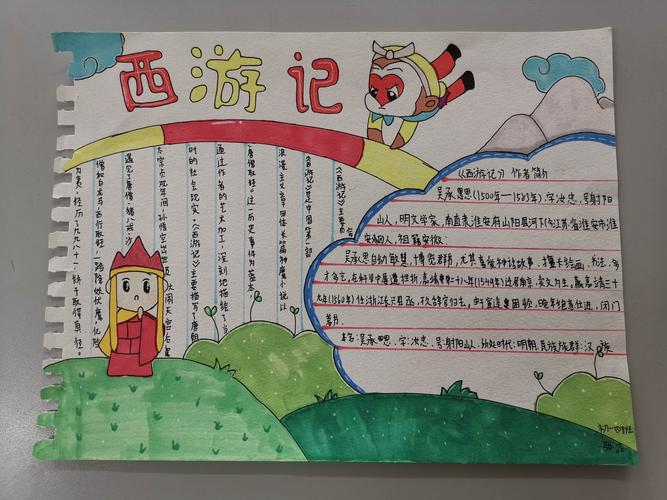 西游记
《西游记》主要
《西游记》是中国第一部
浪漫主义章回体长篇神魔小说,以
唐僧取经这一历史事件为蓝本,
通过作者的艺术加工,深刻地描绘了当
时的社会现实。《西游记》主要描写了唐朝
太宗贞观年间,孙悟空出世及大闹天宫后
遇见了唐僧、猪八戒、沙
僧和白龙马,西行取经,一路降妖伏魔,化险
为夷,经历了九九八十一,终于取得真经。
《西游记》作者简介
吴承恩(1500年—1583年),字汝忠,号射阳
山人,明文学家,南直隶淮安府山阳县河下(今江苏省淮安市淮
安)人,祖籍安徽。
吴承恩自幼聪慧,博览群书,尤其喜爱神话故事,擅长绘画、书法,多
才多艺,在科举中屡遭挫折,嘉靖二十八年(1549年)
九年(1560年)任浙江长兴县丞,晚年绝意仕进,闭门
著书
吴承恩,字:汝忠,号:射阳山人,所处时代:明朝,民族族群:汉族
初一四班